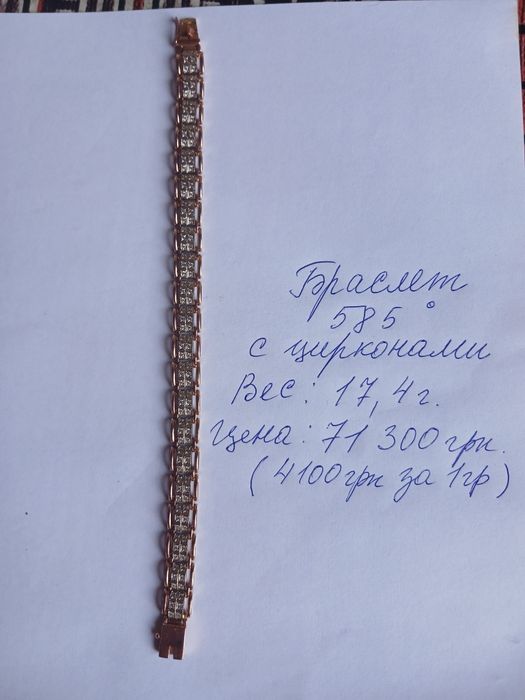 Браслет
585°
с цирконами
Вес: 17,4г.
Цена: 71 300грн.
(4100грн за 1гр)